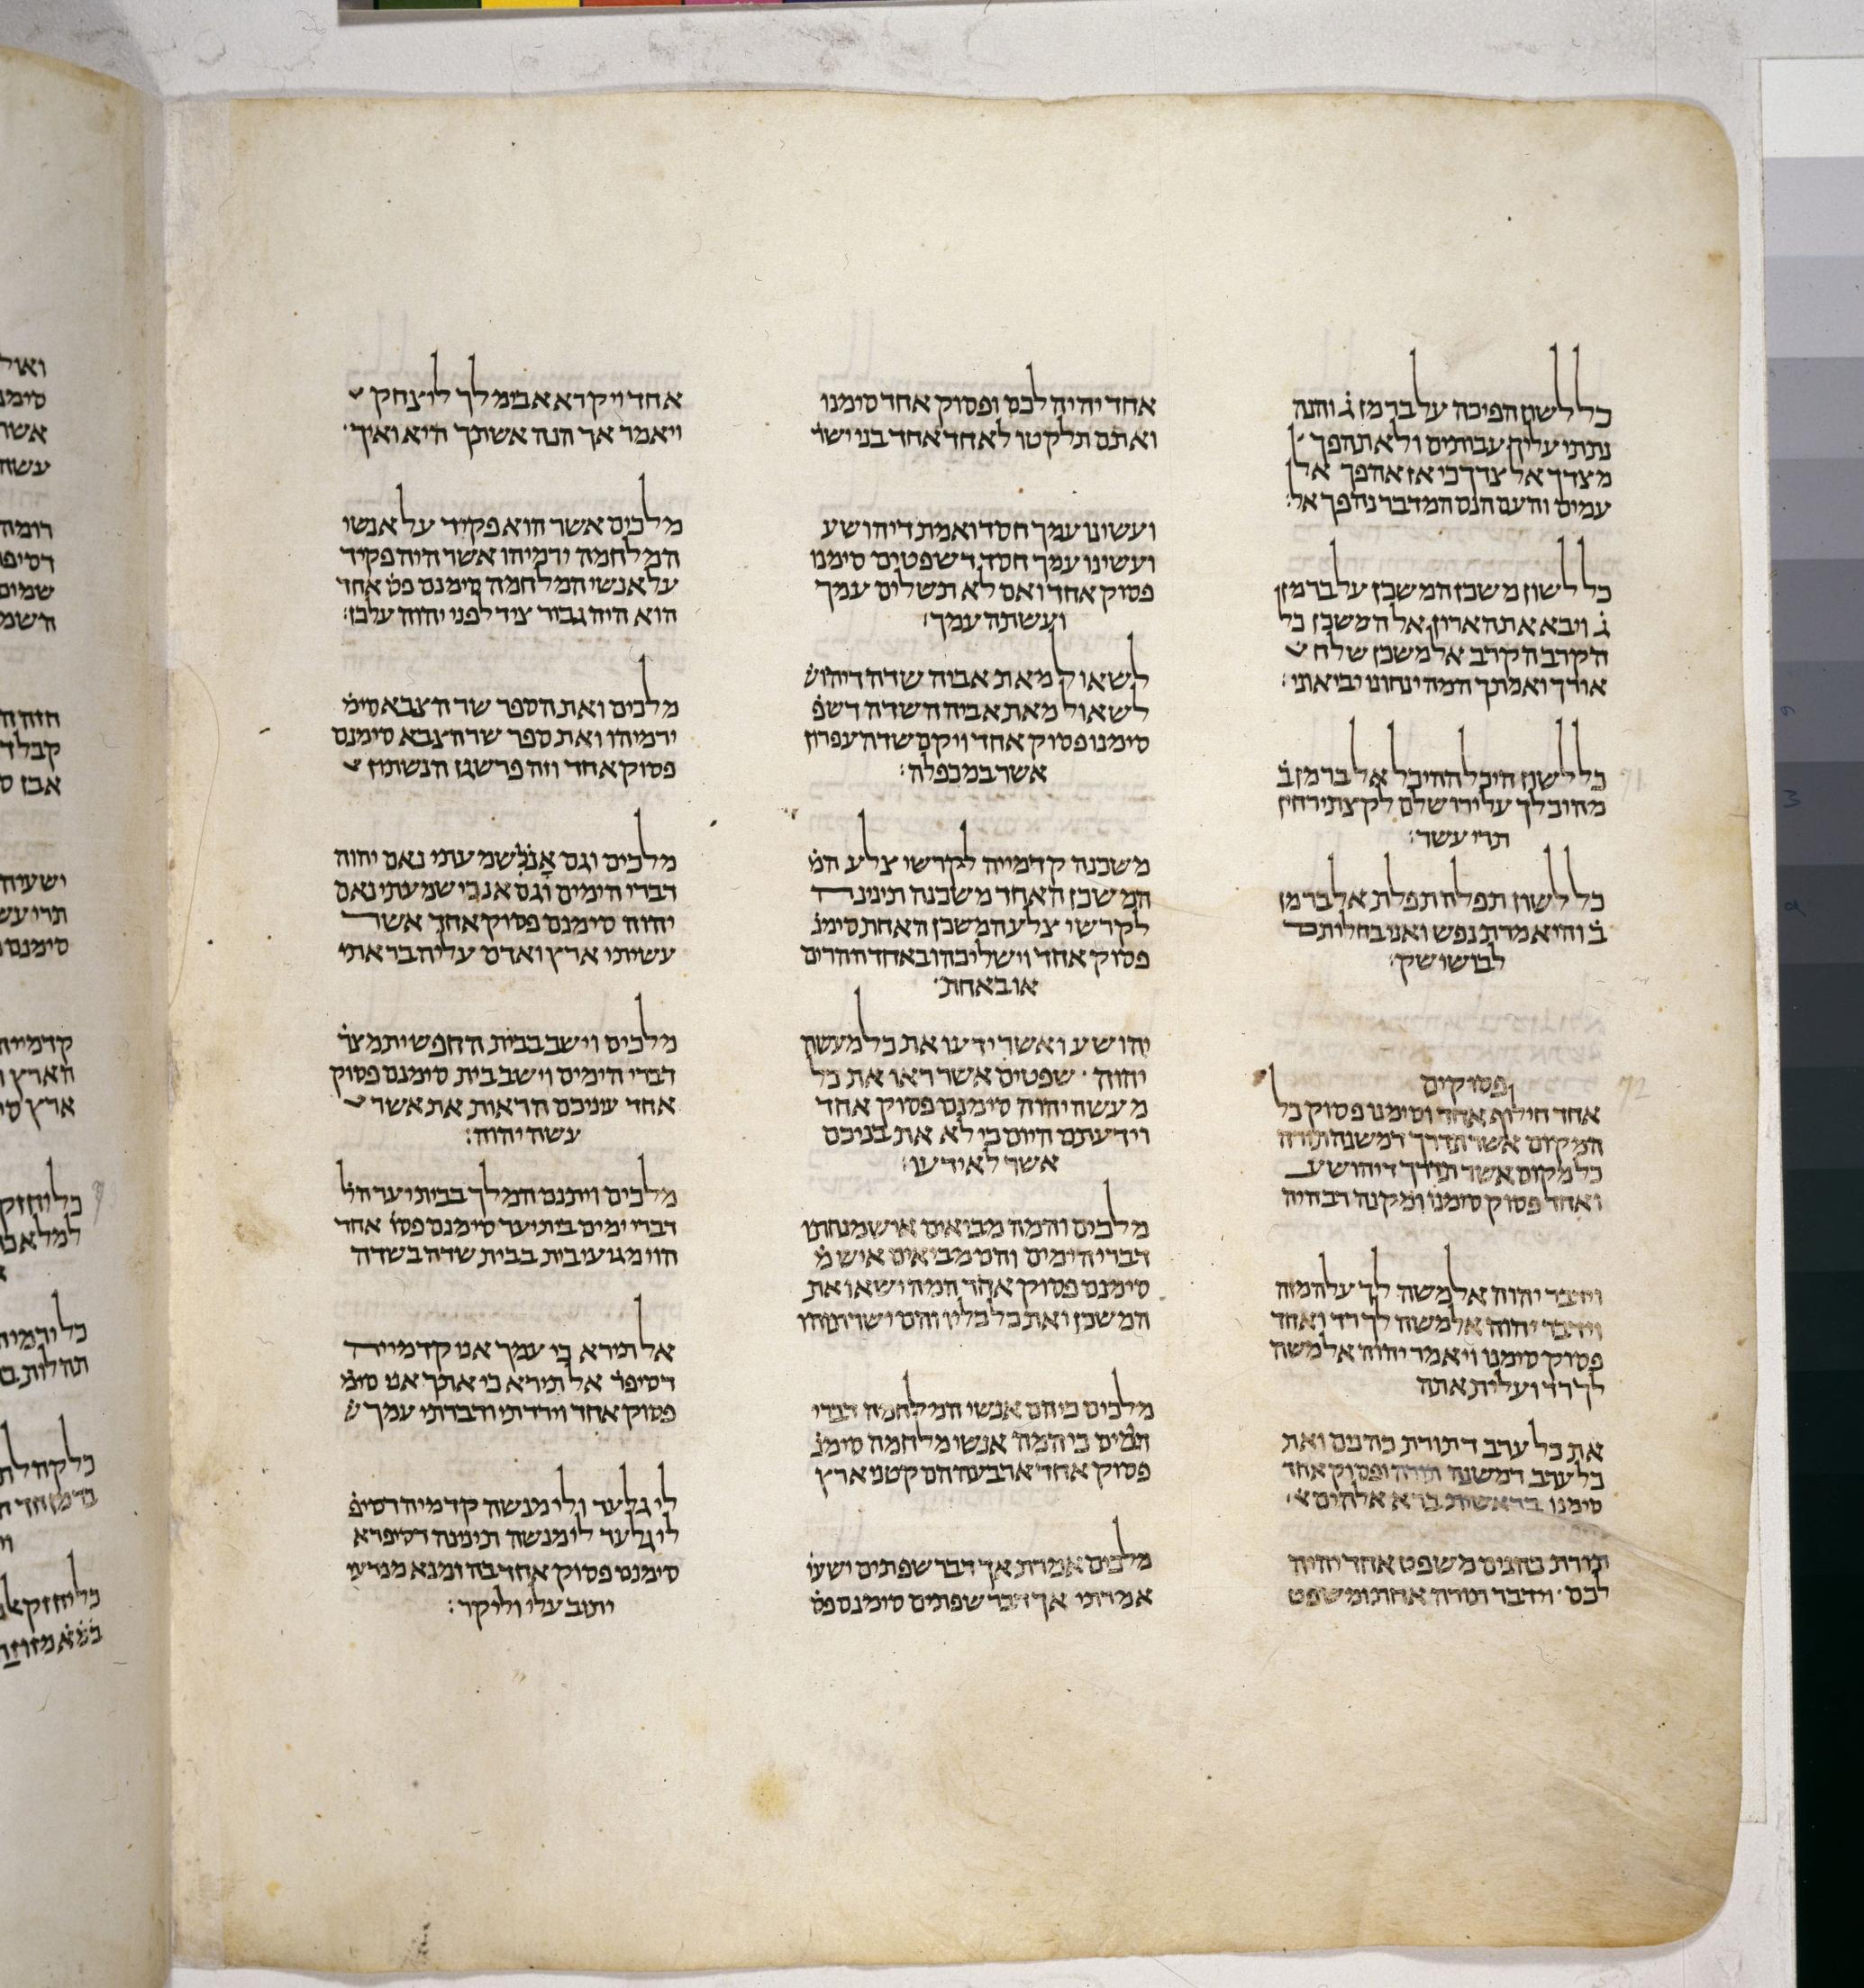 כל לשון הפיכה על ברמן ג̇ והנה
נתתי עליך עבותים ולא תהפך
מצדך אל צדך כי אז אהפך אל
עמים והעם הנס המדבר נהפך אל׃
כל לשון משכן המשכן על ברמן
ג̇ ויבא את הארון אל המשכן כל
הקרב הקרב אל משכן שלח
אורך ואמתך המה ינחוני יביאוני׃
כל לשון היכל ההיכל אל ברמן ב̇
מהובלך על ירושלם לקצתי רחין
תרי עשר׃
כל לשון תפלה תפלת אל ברמן
ב̇ והיא מרת נפש ואני בחלותם
לבושי שק׃
פסוקים
אחד חילוף אחד וסימנו פסוק כל
המקום אשר תדרך דמשנה תורה
כל מקום אשר תדרך דיהושע
ואחד פסוק סימנו ומקנה רב היה
וידבר יהוה אל משה לך עלה מזה
וידבר יהוה אל משה לך רד ואחד
פסוק סימנו ויאמר יהוה אל משה
לך רד ועלית אתה
את כל ערב דתורת כהנים ואת
כל ערב דמשנה תורה ופסוק אחד
סימנו בראשית ברא אלהים א׃
תורת כהנים משפט אחד יהיה
לכם · וידבר תורה אחת ומשפט
אחד יהיה לכם ופסוק אחד סימנו
ואתם תלקטו לאחד אחד בני ישר̇
ועשינו עמך חסד ואמת דיהושע
ועשינו עמך חסד דשפטים סימנו
פסוק אחד ואם לא תשלים עמך
ועשתה עמך׃
לשאול מאת אביה שדה דיהוש̇
לשאול מאת אביה השדה דשפ̇
סימנו פסוק אחד ויקם שדה עפרון
אשר במכפלה׃
משכנה קדמייה לקרשי צלע המ̇
המשכן האחד משכנה תינינה
לקרשי צלע המשכן האחת סימנ̇
פסוק אחד וישליכהו באחד ההרים
או באחת׃
יהושע ואשר ידעו את כל מעשה
יהוה · שפטים אשר ראו את כל
מעשה יהוה סימנם פסוק אחד
וידעתם היום כי לא את בניכם
אשר לא ידעו׃
מלכים והמה מביאים איש מנחתו
דברי הימים והם מביאים איש מ̇
סימנם פסוק אחד המה ישאו את
המשכן ואת כל כליו והם ישרתהו
מלכים כי הם אנשי המלחמה דברי
הימים כי המה אנשי מלחמה סימנ̇
פסוק אחד ארבעה הם קטני ארץ
מלכים אמרת אך דבר שפתים ישעי̇
אמרתי אך דבר שפתים סימנם פס̇
אחד ויקרא אבימלך ליצחק
ויאמר אך הנה אשתך היא ואיך׃
מלכים אשר הוא פקיד על אנשי
המלחמה ירמיהו אשר היה פקיד
על אנשי המלחמה סימנם פס̇ אחד
הוא היה גבור ציד לפני יהוה על כן׃
מלכים ואת הספר שר הצבא סימ̇
ירמיהו ואת ספר שר הצבא סימנם
פסוק אחד וזה פרשגן הנשתון
מלכים וגם אנכי שמעתי נאם יהוה
דברי הימים וגם אני שמעתי נאם
יהוה סימנם פסוק אחד אשר
עשיתי ארץ ואדם עליה בראתי
מלכים וישב בבית החפשית מצר̇
דברי הימים וישב בית סימנם פסוק
אחד עיניכם הראות את אשר
עשה יהוה׃
מלכים ויתנם המלך בבית יער הל̇
דברי ימים בית יער סימנם פסו̇ אחד
הוי מגיעי בית בבית שדה בשדה
אל תירא כי עמך אני קדמייה
דסיפר̇ אל תירא כי אתך אני סימ̇
פסוק אחד וירדתי ודברתי עמך ש̇
לי גלעד ולי מנשה קדמיה דסיפ̇
לי גלעד לי מנשה תינינה דסיפרא
סימנם פסוק אחד בה ומנא מנדעי
יתוב עלי וליקר׃